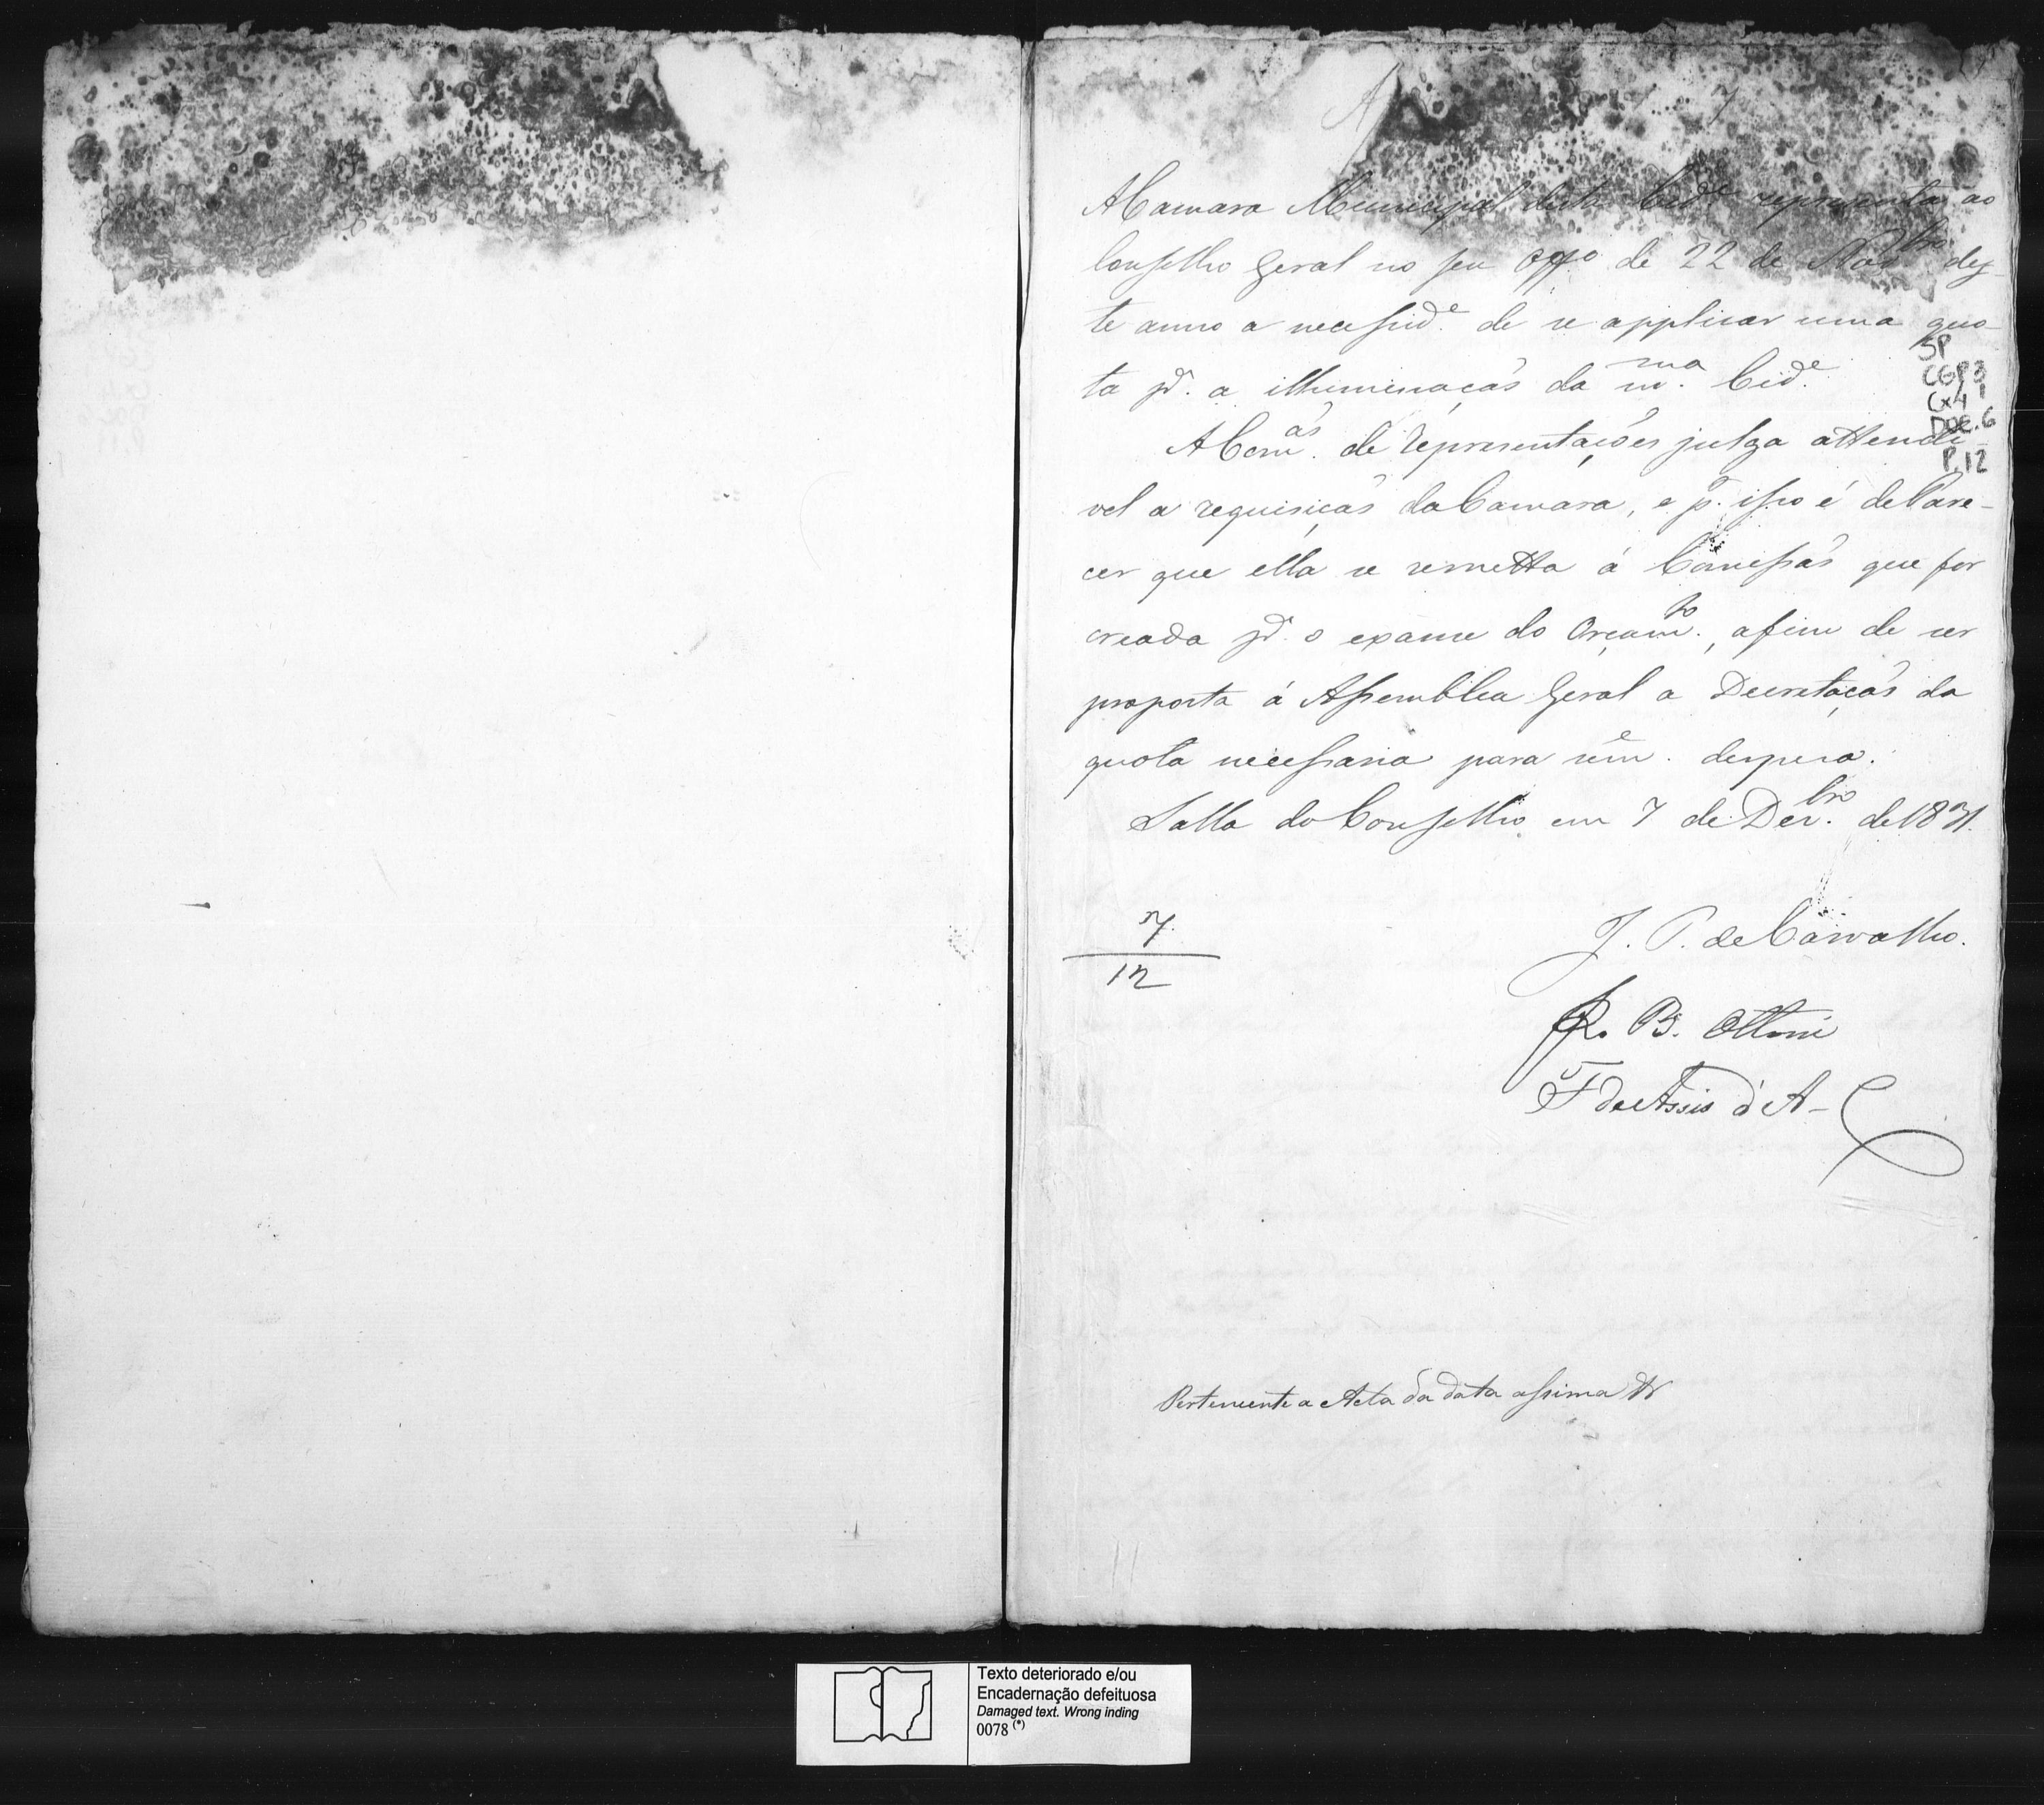 A Camara Municipal desta Cid.e representa ao
Conselho Geral no seu Off.o de 22 de Nov.bro des-
te anno a necessid.e de se applicar uma quo-
ta p.a a illuminação da m.ma Cid.e
A Com.ão de representações julga attendi-
vel a requisição da Camara, e p.r isso é de Pare-
cer que ella se remetta á Comissão que for
creada p.a o exame do Orçam.to, afim de ser
proposta á Assemblea Geral a Decretação da
quota necessaria para sem.e despesa.
Salla do Conselho em 7 de Dez.bro de 1831.
SP
CGP 3
Cx 4
DOC. 6
P. 12
7
12
J. P. de Carvalho.
R. B. Ottoni
F de Assis d'A
Pertencente a Acta da data assima
11
Texto deteriorado e/ou
Encadernação defeituosa
Damaged text. Wrong inding
0078 (*)